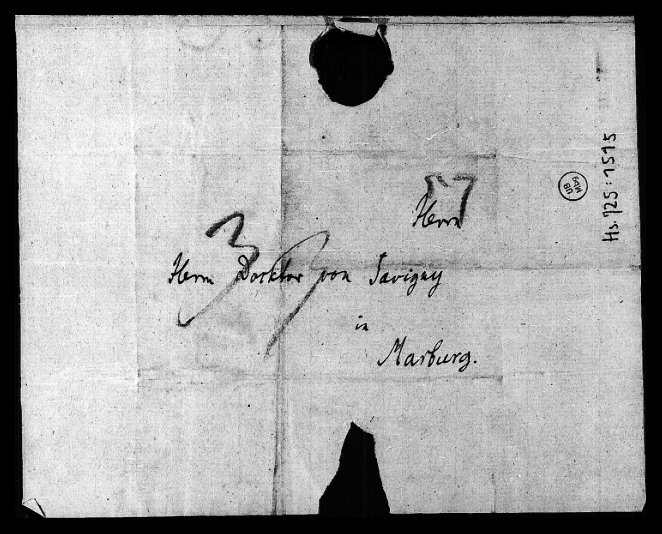 Herrn
Herrn Docktor von Savigny
in
Marburg.
UB
Mbg
Hs. 725:1515